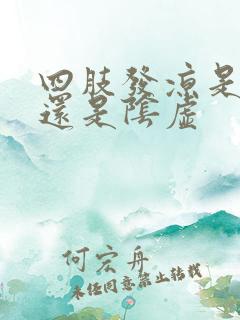 四肢發涼是
還是陰虛
何宏舟
未經同意禁止轉載